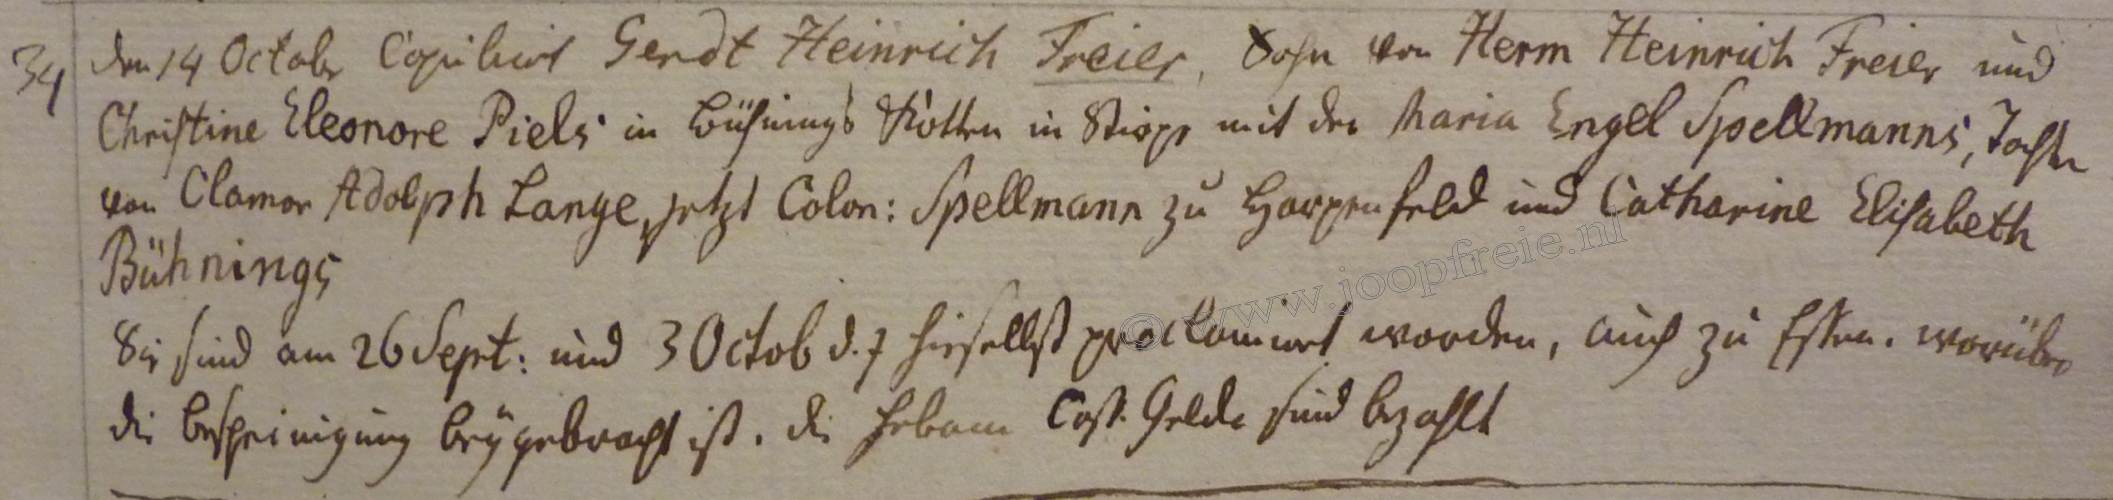 34 den 14 Octobr Copulirt Gerdt Heinrich Freier, Sohn von Herm Heinrich Freier und
Christine Eleonore Piels in Bühnings Kotten in Stirpe mit der Maria Engel Spellmanns, Tochter
von Clamor Adolph Lange, jetzt Colon: Spellmann zu Harpenfeld und Catharine Elisabeth
Bühnings
Sie sind am 26 Sept: und 3 Octob d. J hieselbst proclamirt worden, auch zu Essen. worüber
die bescheinigung beÿgebracht ist. die Hebam Cass. Gelder sind bezahlt
© www.joopfreie.nl